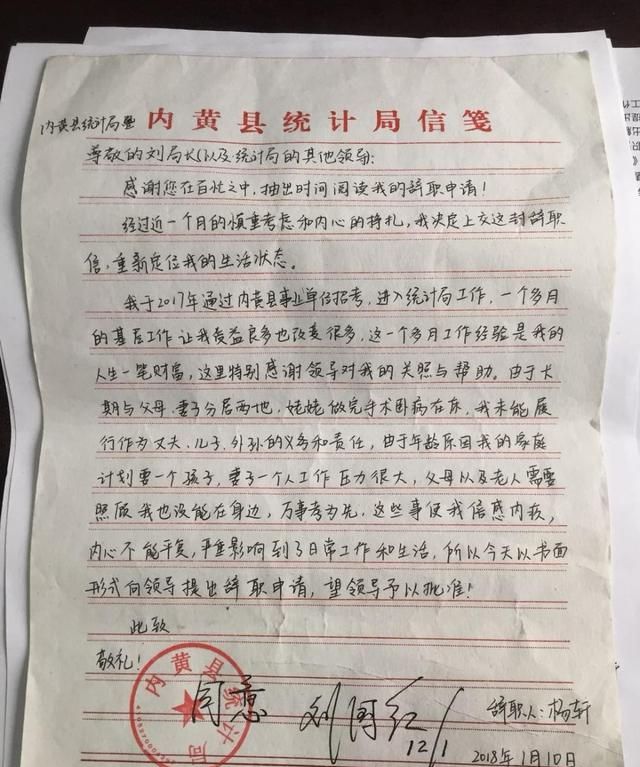 内黄县统计局信笺
内黄县统计局
尊敬的刘局长以及统计局的其他领导:
感谢您在百忙之中,抽出时间阅读我的辞职申请!
经过近一个月的慎重考虑和内心的挣扎,我决定上交这封辞职
信,重新定位我的生活状态。
我于2017年通过内黄县事业单位招考,进入统计局工作,一个多月
的基层工作让我受益良多也改变很多,这一个多月工作经验是我的
人生一笔财富,这里特别感谢领导对我的关照与帮助。由于长
期与父母、妻子分居两地,姥姥做完手术卧病在床,我未能履
行作为丈夫、儿子、外孙的义务和责任,由于年龄原因我的家庭
计划要一个孩子,妻子一个人工作压力很大,父母以及老人需要
照顾我也没能在身边,万事孝为先,这些事使我倍感内疚,
内心不能平复,严重影响到了日常工作和生活,所以今天以书面
形式向领导提出辞职申请,望领导予以批准!
此致
敬礼!
内黄县统计局
同意 刘国红
12/1
辞职人:杨轩
2018年1月10日